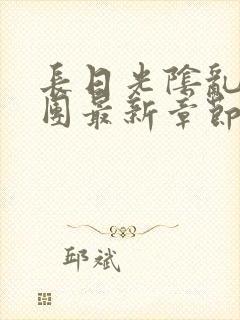 長日光陰亂
團最新章節
邱斌